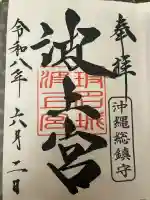 奉拝
沖縄総鎮守
波上宮
令和八年 六月 二日